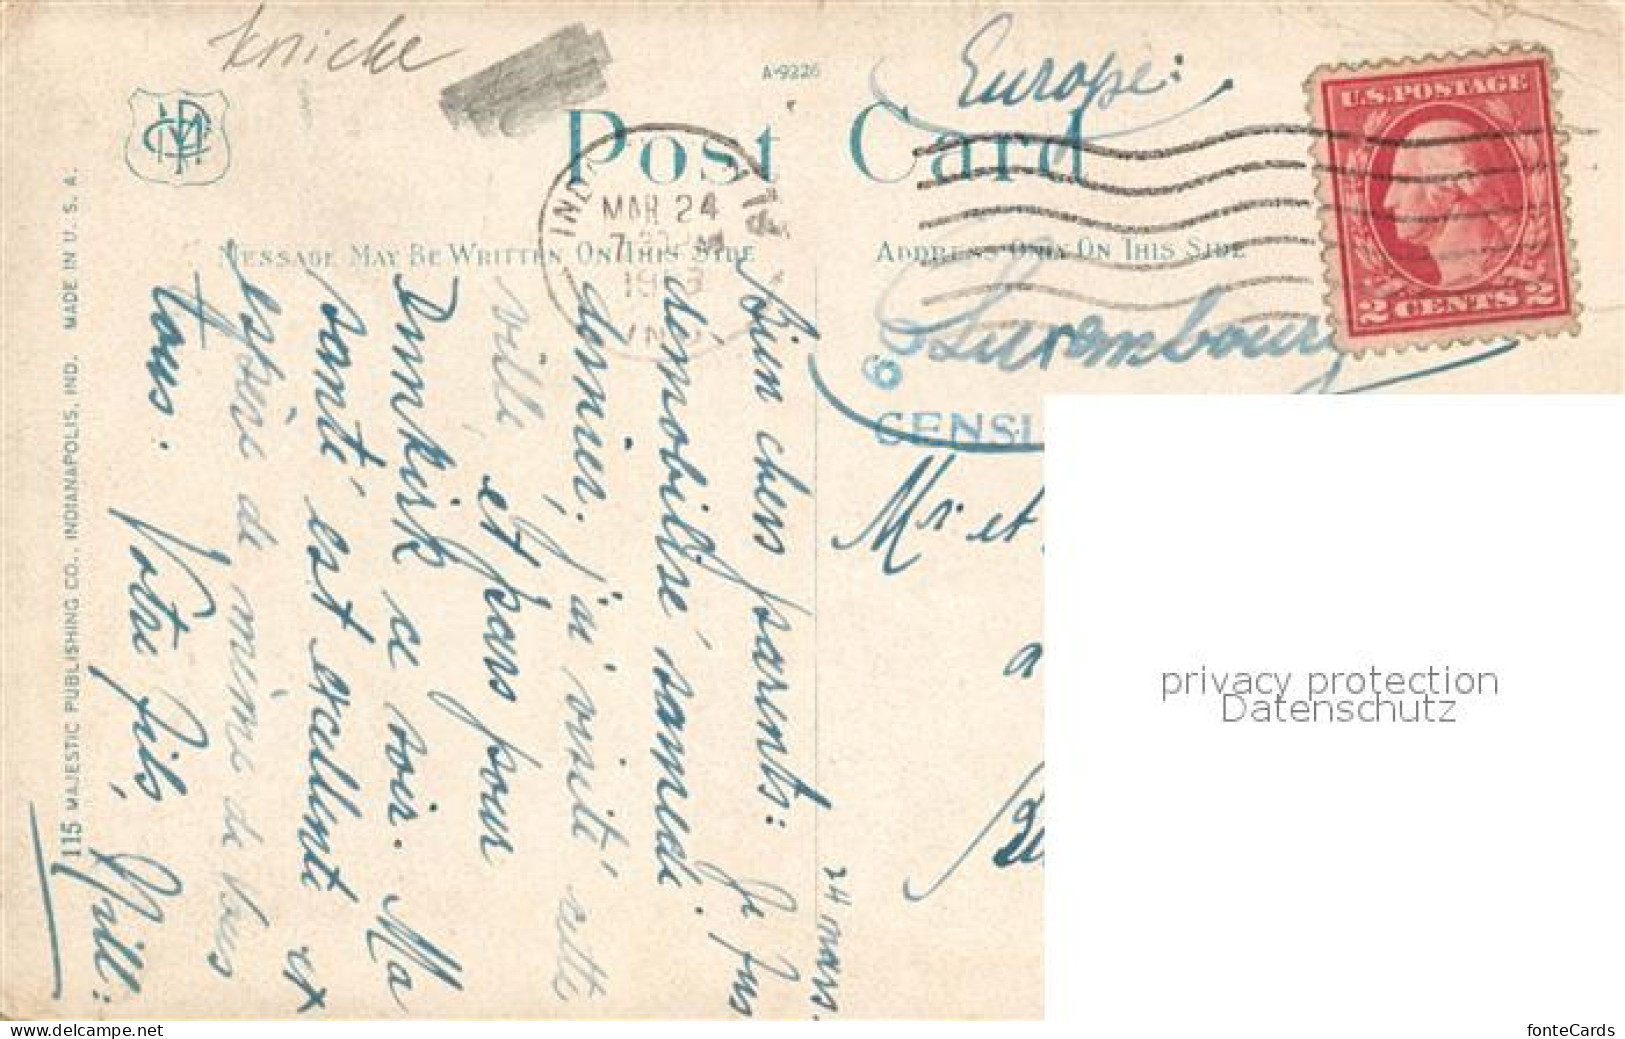 knicke
A-9226
Post Card
Europe:
MAR 24
IND.
U.S. POSTAGE
2 CENTS 2
MESSAGE MAY BE WRITTEN ON THIS SIDE
ADDRESS ONLY ON THIS SIDE
Luxembourg
6
CENSU
Mr et
a
24 mars.
Bien chers parents: Je fus
démobilisé samedi
dernier. j'ai visité cette
ville et pars pour
ce soir. Ma
santé est excellente et
espère de même de vous
tous. Votre fils, Will:
115 MAJESTIC PUBLISHING CO., INDIANAPOLIS, IND. MADE IN U. S. A.
privacy protection
Datenschutz
www.ansichtskarten-center.de
fonteCards